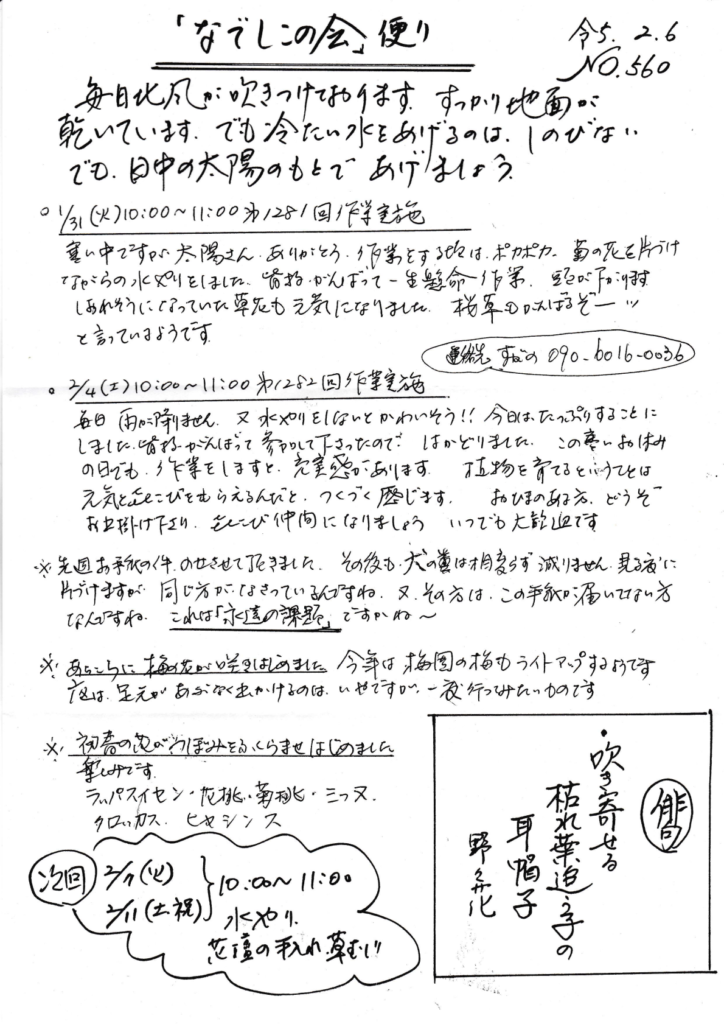 「なでしこの会」便り
令5.2.6
NO.560
毎日北風が吹きつけております。すっかり地面が
乾いています。でも冷たい水をあげるのは、しのびない
でも、日中の太陽のもとで あげましょう。
○ 1/31(火)10:00～11:00 第1281回作業実施
寒い中ですが、太陽さん、ありがとう。作業をする頃は、ポカポカ。菊の花を片づけ
ながらの水やりをしました。皆様がんばって一生懸命作業、頭が下がります
しおれそうになっていた草花も元気になりました。桜草もがんばるぞー ッ
と言っているようです。
連絡先 090-6016-0036
○ 2/4(土)10:00～11:00 第1282回作業実施
毎日 雨が降りません。又 水やりをしないとかわいそう!! 今日は、たっぷりすることに
しました。皆様がんばって参加して下さったので はかどりました。この寒いお休み
の日でも、作業をしますと、充実感があります。植物を育てるということは
元気と喜こびをもらえるんだと、つくづく感じます。おひまのある方、どうぞ
お出掛け下さり、喜こび仲間になりましょう いつでも大歓迎です
※ 先週お手紙の件、のせさせて頂きました。その後も、犬の糞は相変らず減りません。見る度に
片づけますが 同じ方がなさっているんですね。又、その方は、この手紙が届いてない方
なんですね。これは「永遠の課題」ですかね～
※ あちこちに梅の花が咲きはじめました 今年は梅園の梅もライトアップするようです
夜は、足元があぶなく出かけるのは、いやですが、一度行ってみたいものです
※ 初春の花がつぼみをふくらませはじめました
楽しみです。
ラッパスイセン・花桃・菊桃・ミツマタ
クロッカス、ヒヤシンス
次回
2/7(火)
2/11(土・祝)
10:00～11:00
水やり、
花壇の手入れ、草むしり
俳句
・吹き寄せる
枯れ葉追う子の
耳帽子